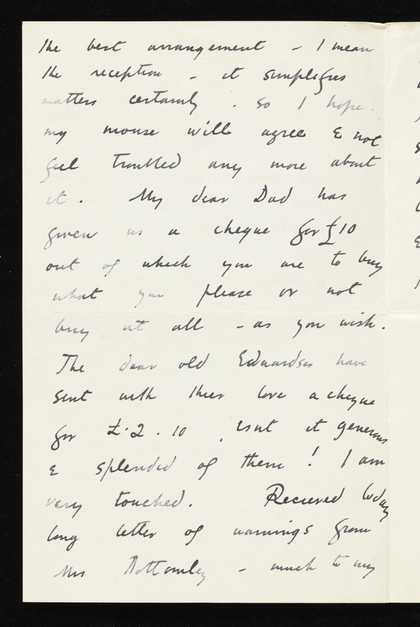 the best arrangement - I mean
the reception - it simplifies
matters certainly. So I hope
my mouse will agree & not
feel troubled any more about
it. My dear Dad has
given us a cheque for £10
out of which you are to buy
what you please or not
buy at all - as you wish.
The dear old Edwardses have
sent with their love a cheque
for £.2.10, isnt it generous
& splendid of them! I am
very touched. Received today
long letter of warnings from
Mrs Bottomley - much to my